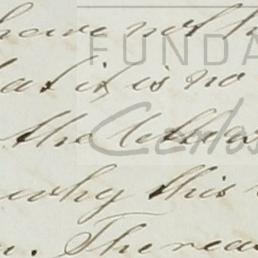 have not
FUNDA
that it is no
the letter
Carlos
why this
The reas